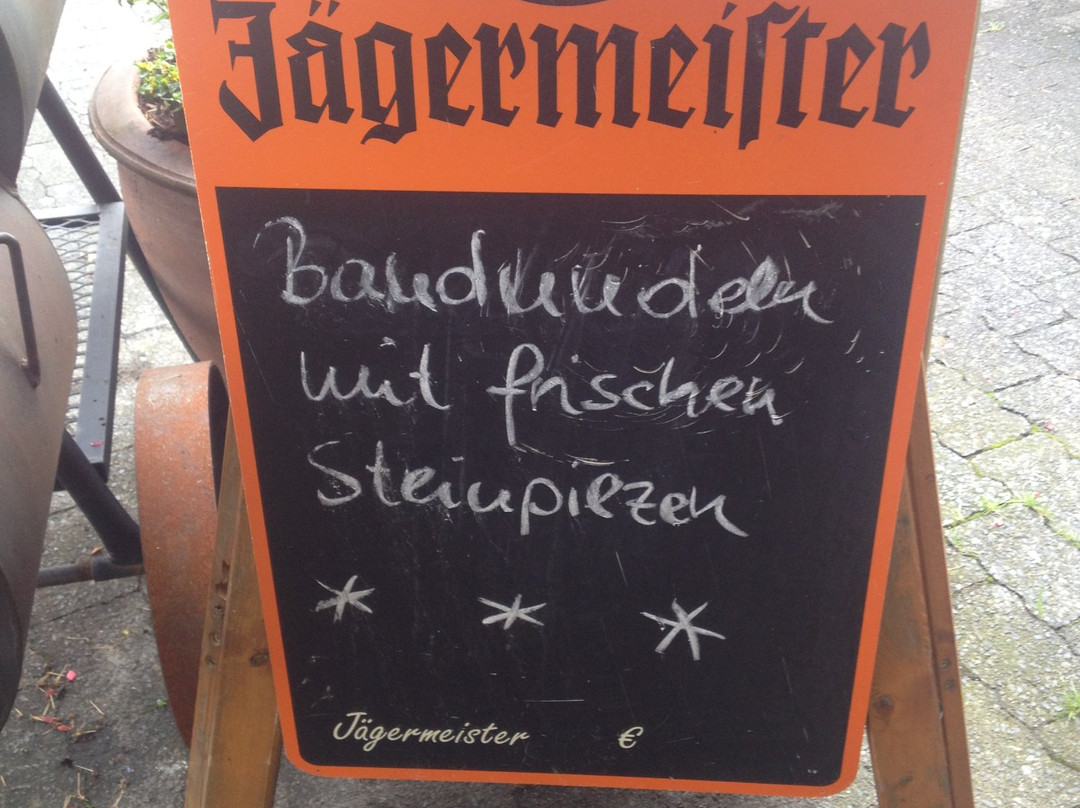 Jägermeister
Bandnudeln
mit frischen
Steinpilzen
* * *
Jägermeister €